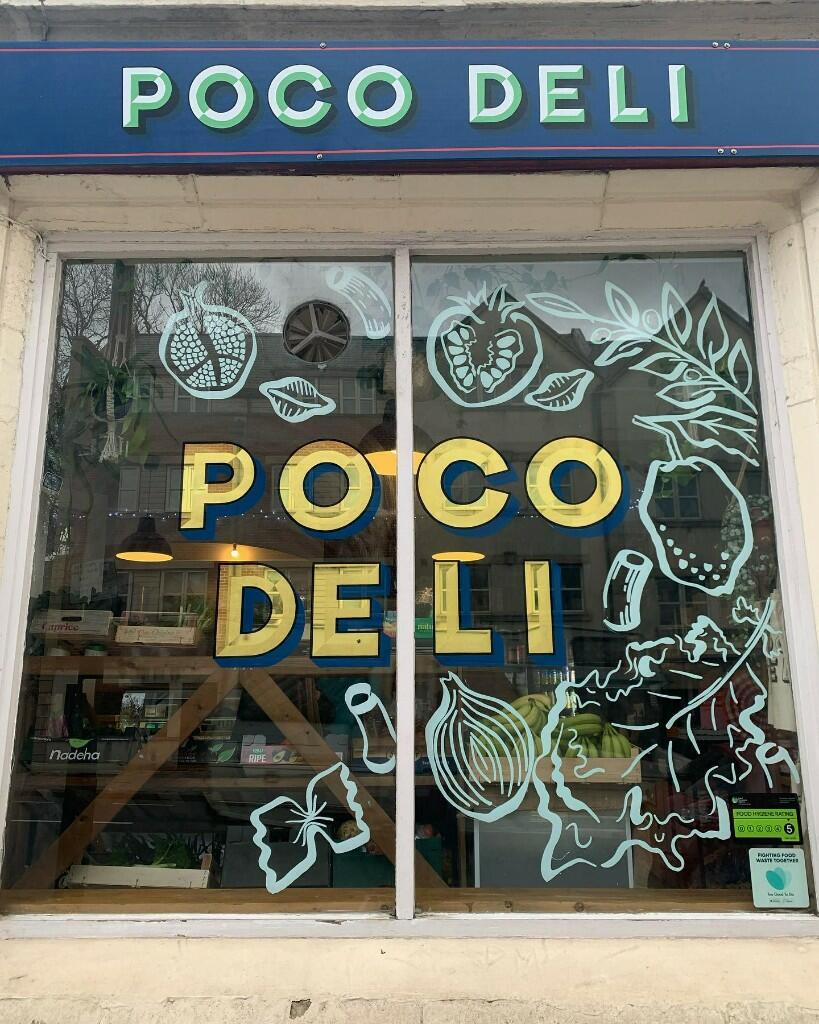 POCO DELI
POCO
DELI
Caprice
nadeha
RIPE
FOOD HYGIENE RATING
0 1 2 3 4 5
FIGHTING FOOD
WASTE TOGETHER
Too Good To Go